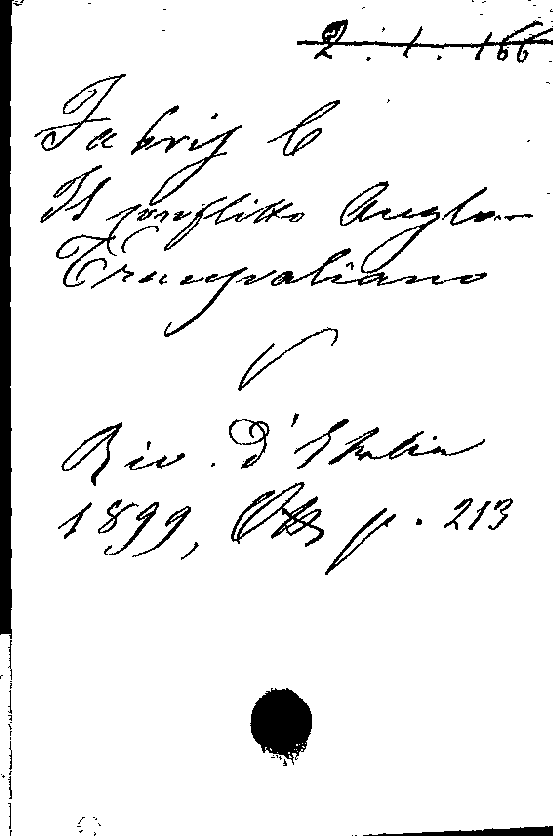 2.1.166
Fabrij C
Il conflitto Anglo-
Transvaliano
Riv. d'Italia
1899, Ott p. 213